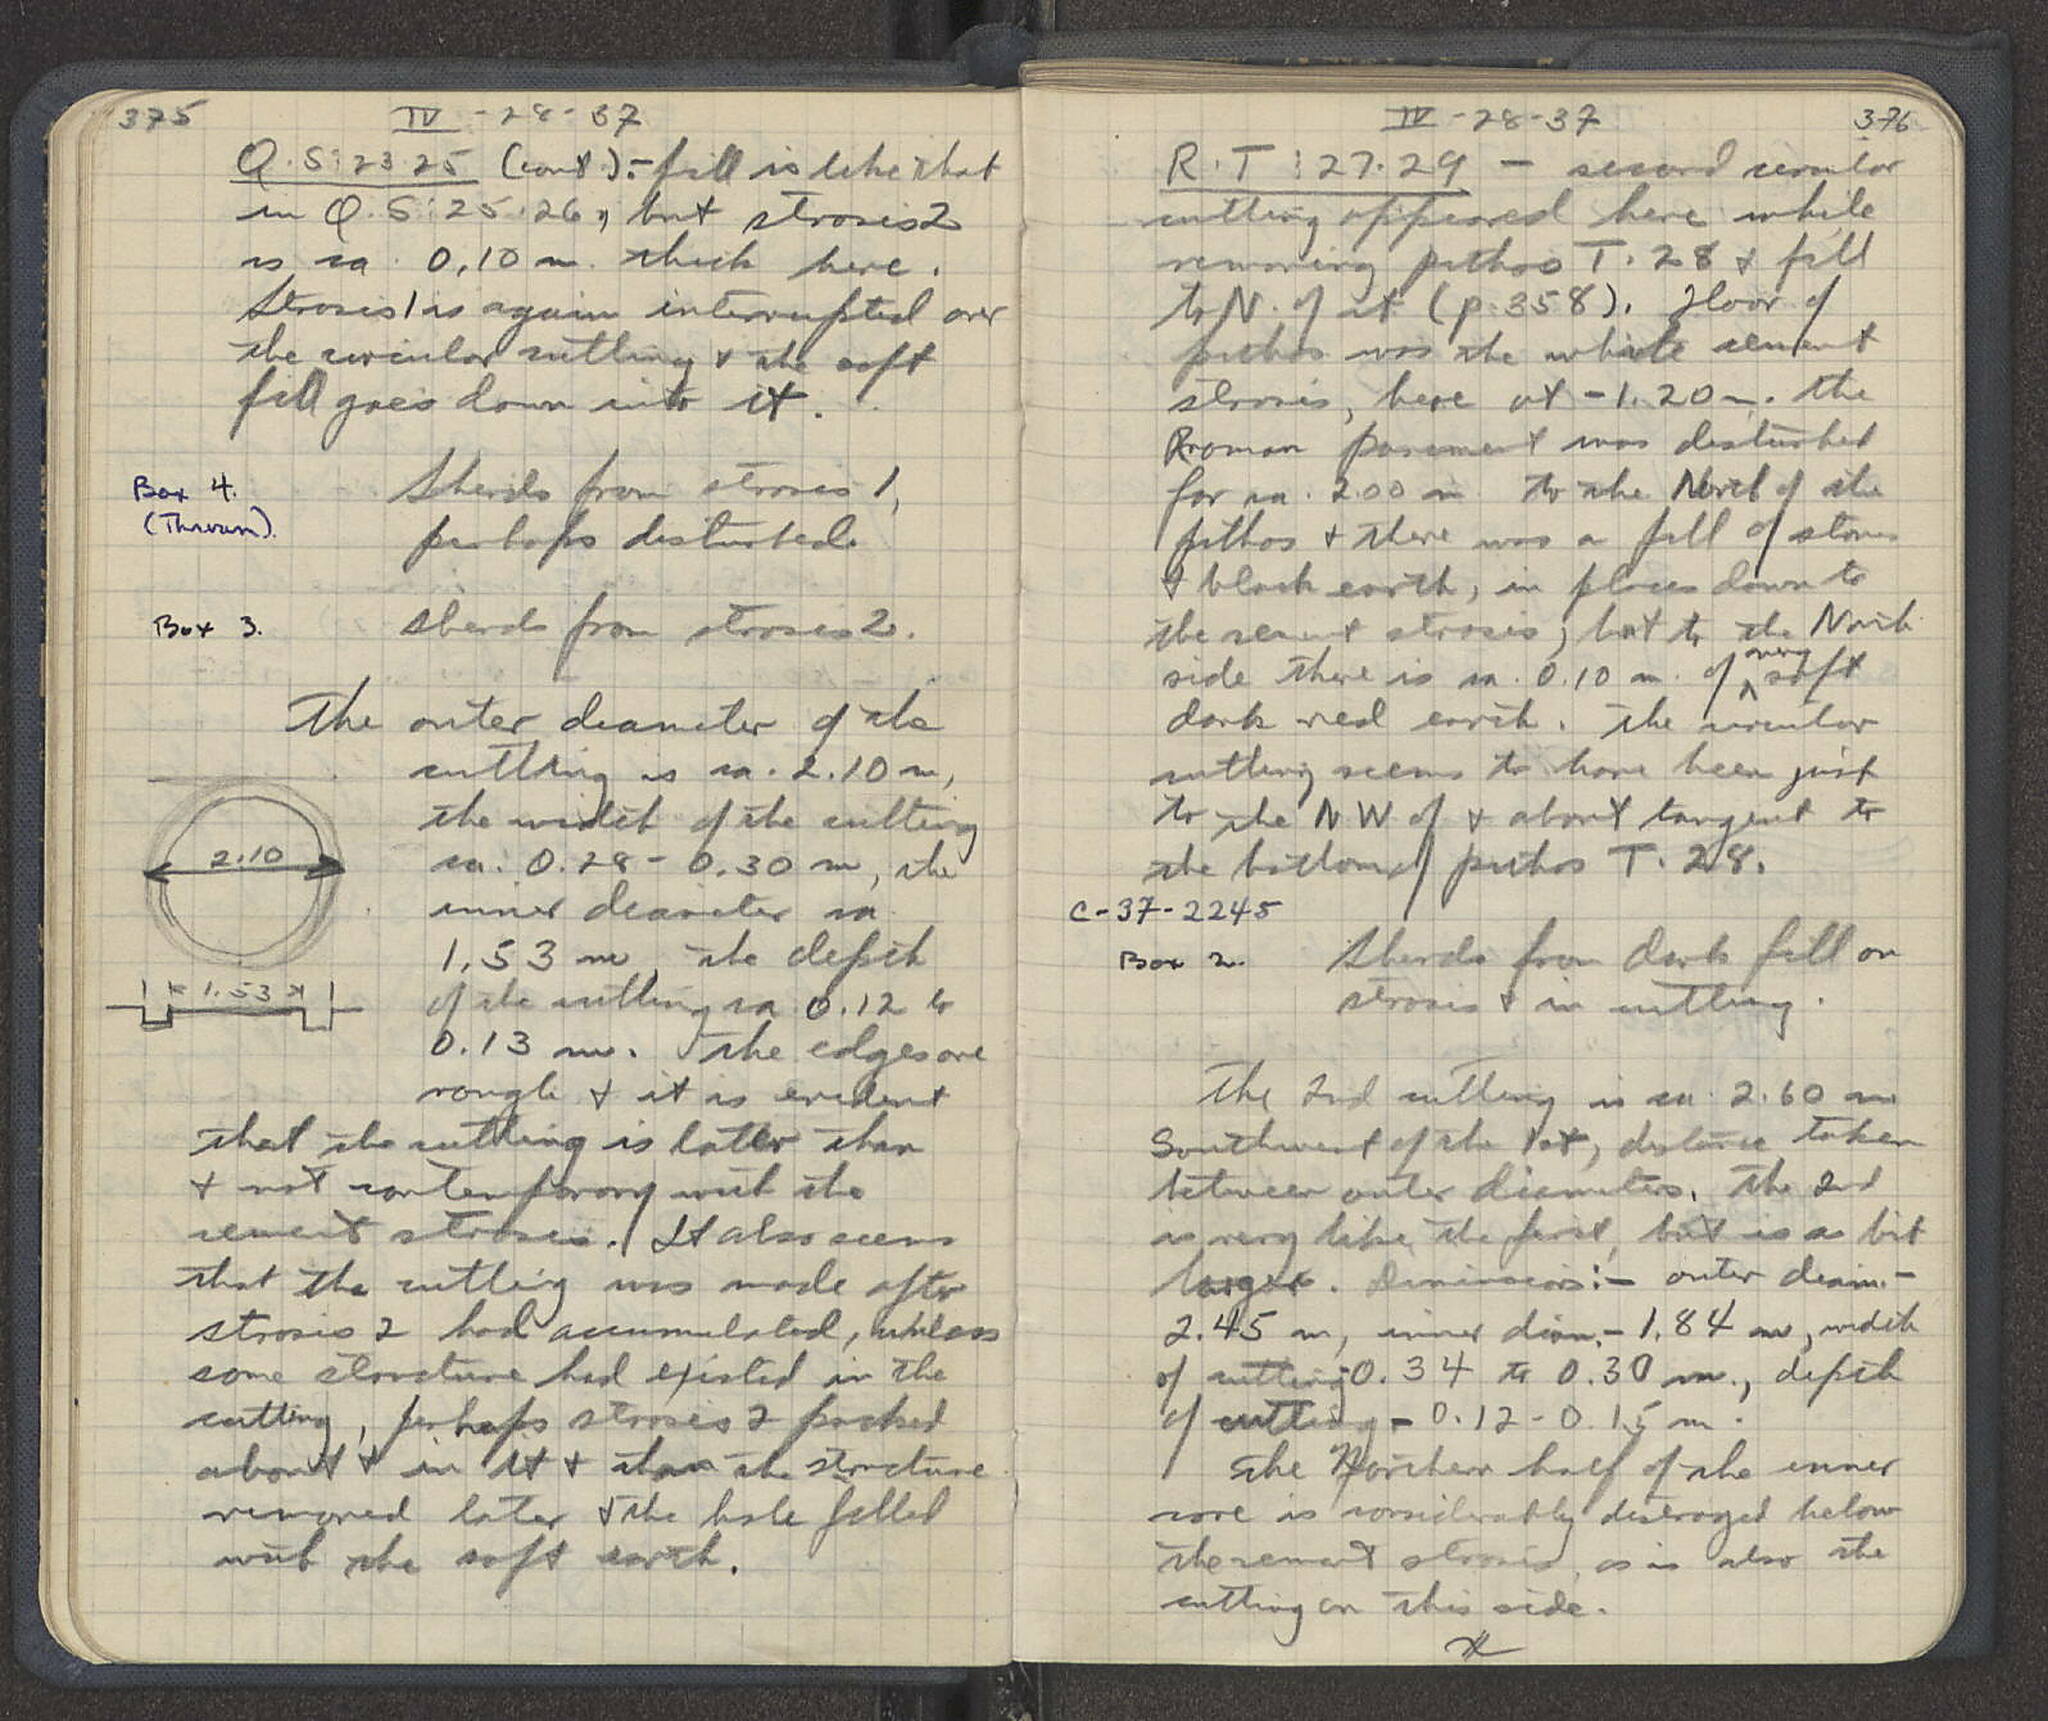 375
IV - 28 - 37
Q·S:23·25 (cont.):- fill is like that
in Q·S:25·26, but strosis 2
is ca. 0,10 m. thick here.
Strosis 1 is again interrupted over
the circular cutting & the soft
fill goes down into it.
Box 4.
(Thrown).
Sherds from strosis 1,
perhaps disturbed.
Box 3.
Sherds from strosis 2.
The outer diameter of the
cutting is ca. 2.10 m,
the width of the cutting
ca. 0.28 - 0.30 m, the
inner diameter ca
1.53 m, the depth
of the cutting ca. 0.12 to
0.13 m. The edges are
rough & it is evident
that the cutting is later than
& not contemporary with the
cement strosis. It also seems
that the cutting was made after
strosis 2 had accumulated, unless
some structure had existed in the
cutting, perhaps strosis 2 packed
about & in it & then the structure
removed later & the hole filled
with the soft earth.
2.10
1.53
IV - 28 - 37
376
R·T:27·29 - second circular
cutting appeared here while
removing pithos T·28 & fill
to N. of it (p.358). Floor of
pithos was the white cement
strosis, here at -1.20 m. The
Roman pavement was disturbed
for ca. 2.00 m to the North of the
pithos & there was a fill of stones
& black earth, in places down to
the cement strosis, but to the North
side there is ca. 0.10 m. of very soft
dark red earth. The circular
cutting seems to have been just
to the NW of & about tangent to
the bottom of pithos T·28.
C-37-2245
Box 2.
Sherds from dark fill on
strosis & in cutting.
The 2nd cutting is ca. 2.60 m
Southwest of the 1st, distance taken
between outer diameters. The 2nd
is very like the first, but is a bit
larger. Dimensions:- outer diam.-
2.45 m, inner diam.- 1.84 m, width
of cutting - 0.34 to 0.30 m., depth
of cutting - 0.12 - 0.15 m.
The Northern half of the inner
core is considerably destroyed below
the cement strosis, as is also the
cutting on this side.